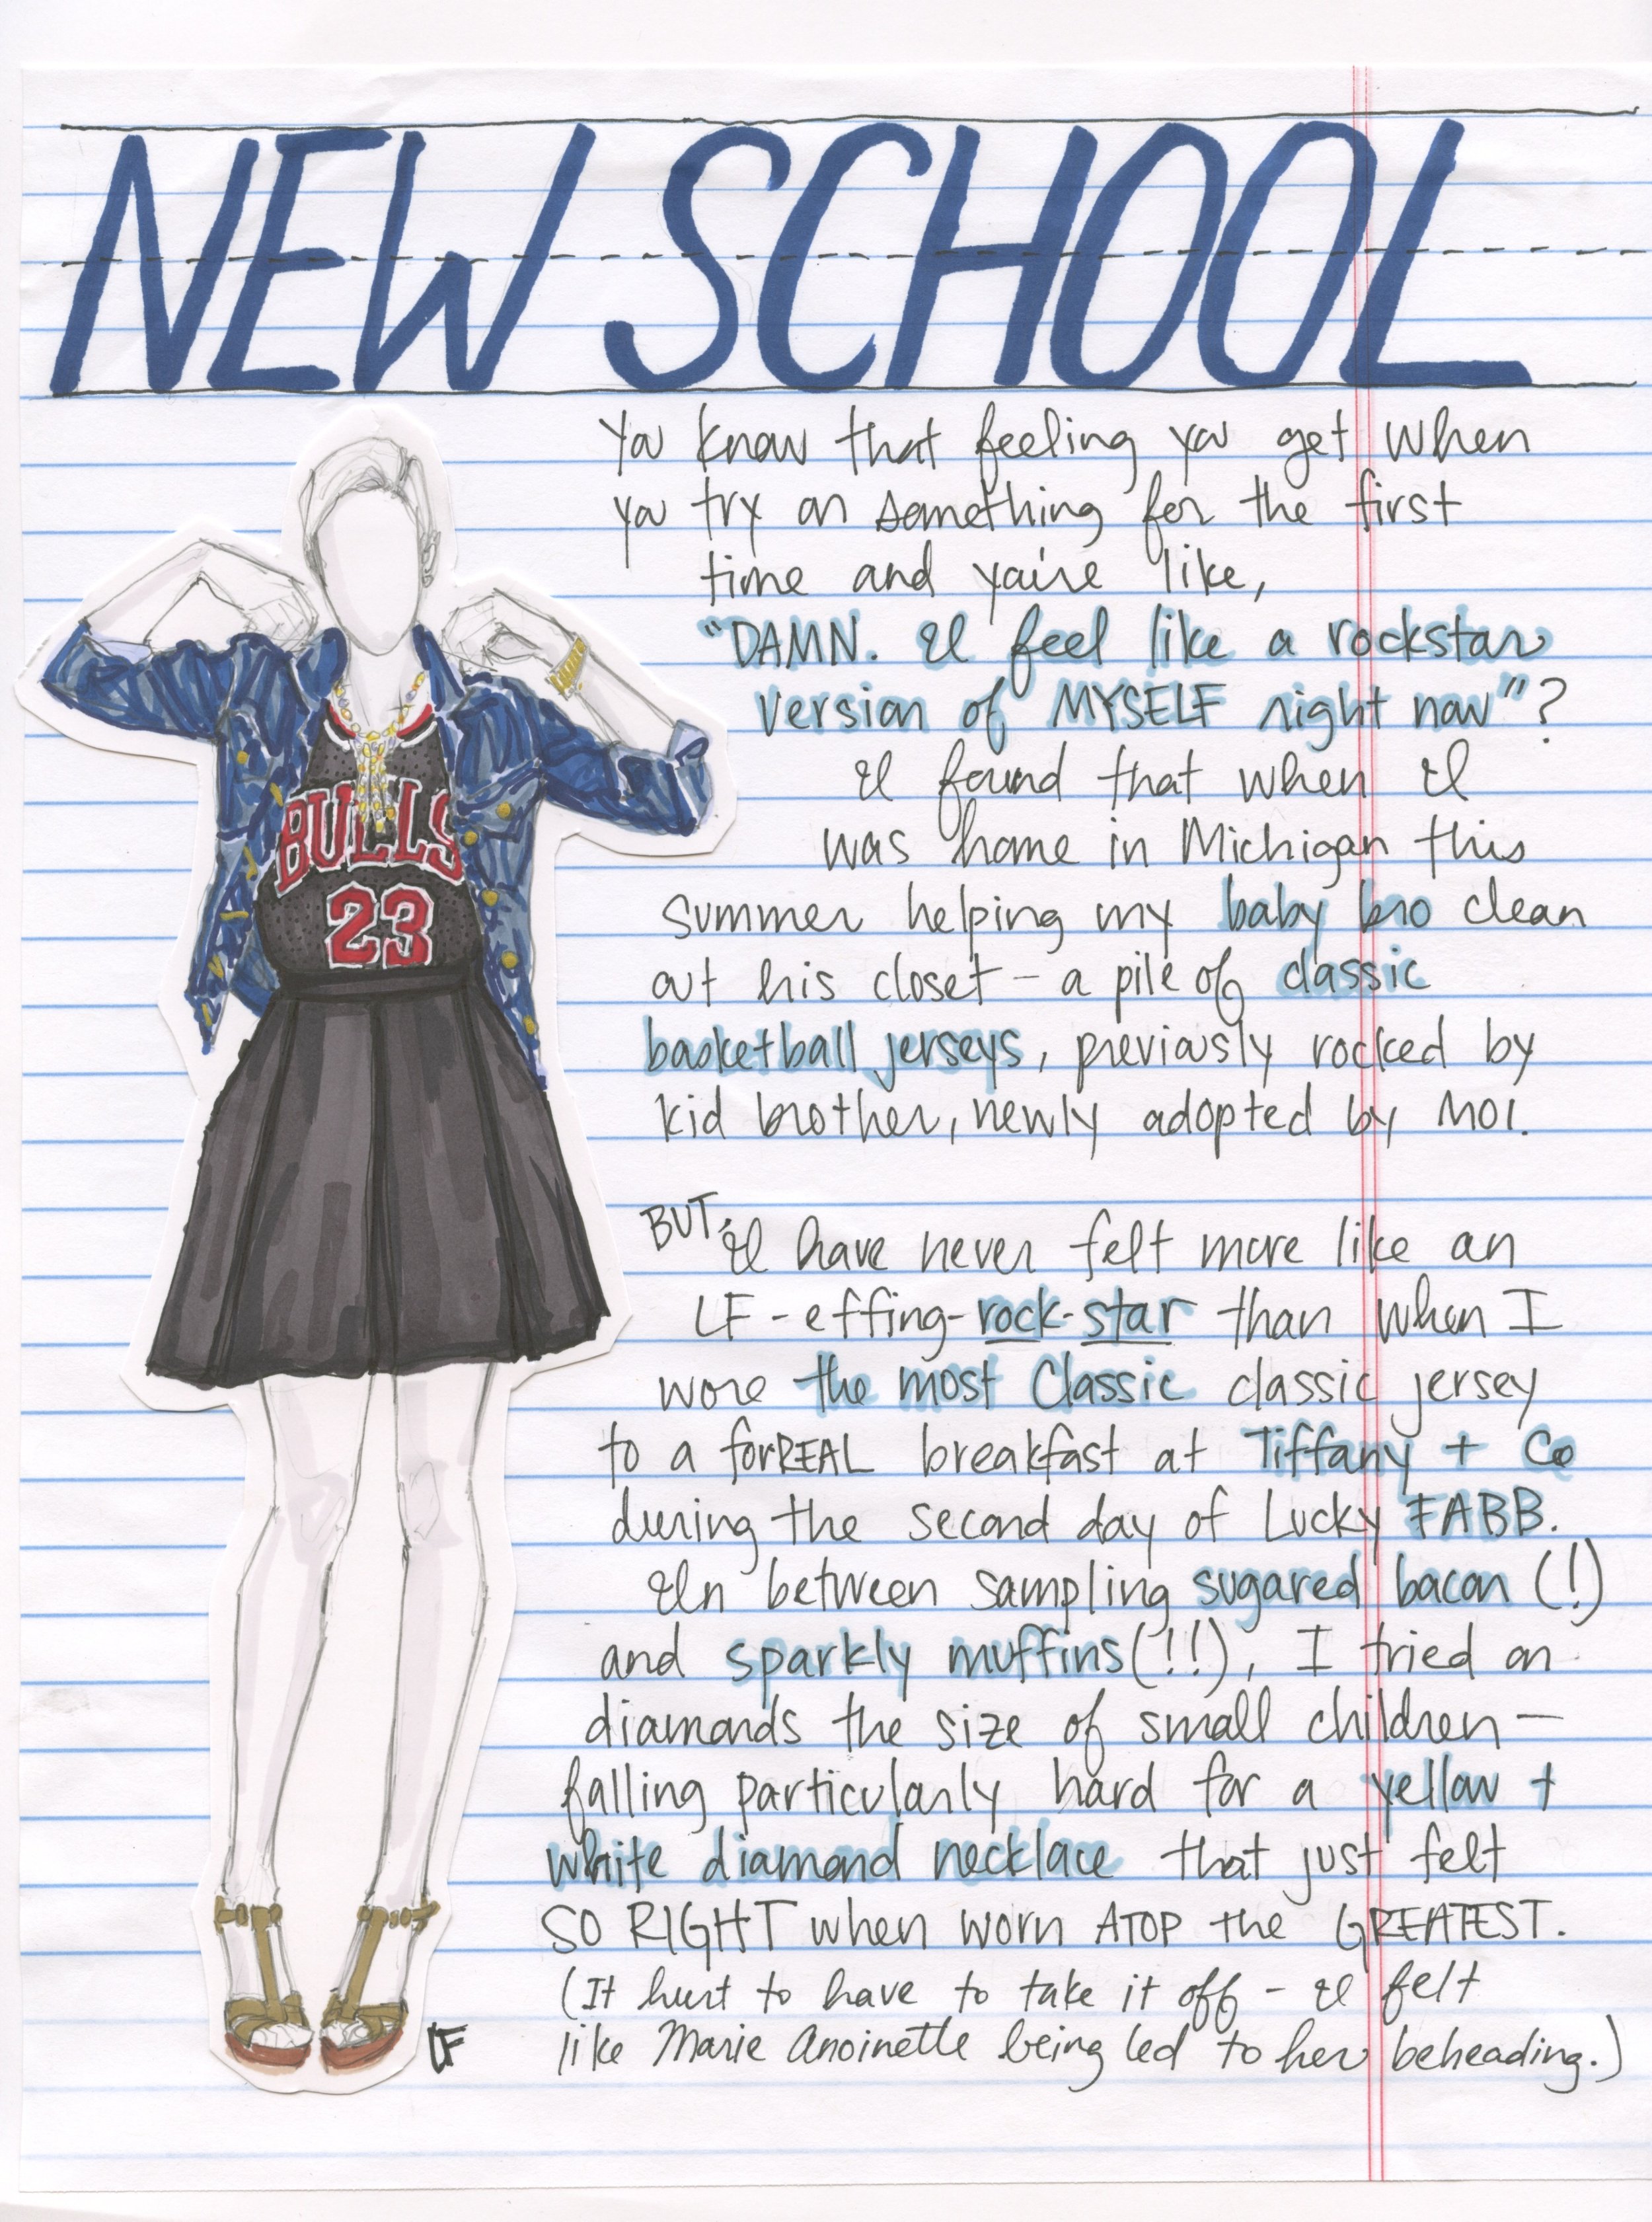 NEW SCHOOL
You know that feeling you get when
you try on something for the first
time and you're like,
"DAMN. I feel like a rockstar
version of MYSELF right now"?
I found that when I
was home in Michigan this
summer helping my baby bro clean
out his closet - a pile of classic
basketball jerseys, previously rocked by
kid brother, newly adopted by MOI.
BUT, I have never felt more like an
LF-effing-rock-star than when I
wore the most Classic classic jersey
to a forREAL breakfast at Tiffany + Co
during the second day of Lucky FABB.
In between sampling sugared bacon (!)
and sparkly muffins (!!), I tried on
diamonds the size of small children -
falling particularly hard for a yellow +
white diamond necklace that just felt
SO RIGHT when worn ATOP the GREATEST.
(It hurt to have to take it off - I felt
like Marie Anoinette being led to her beheading.)
BULLS
23
LF